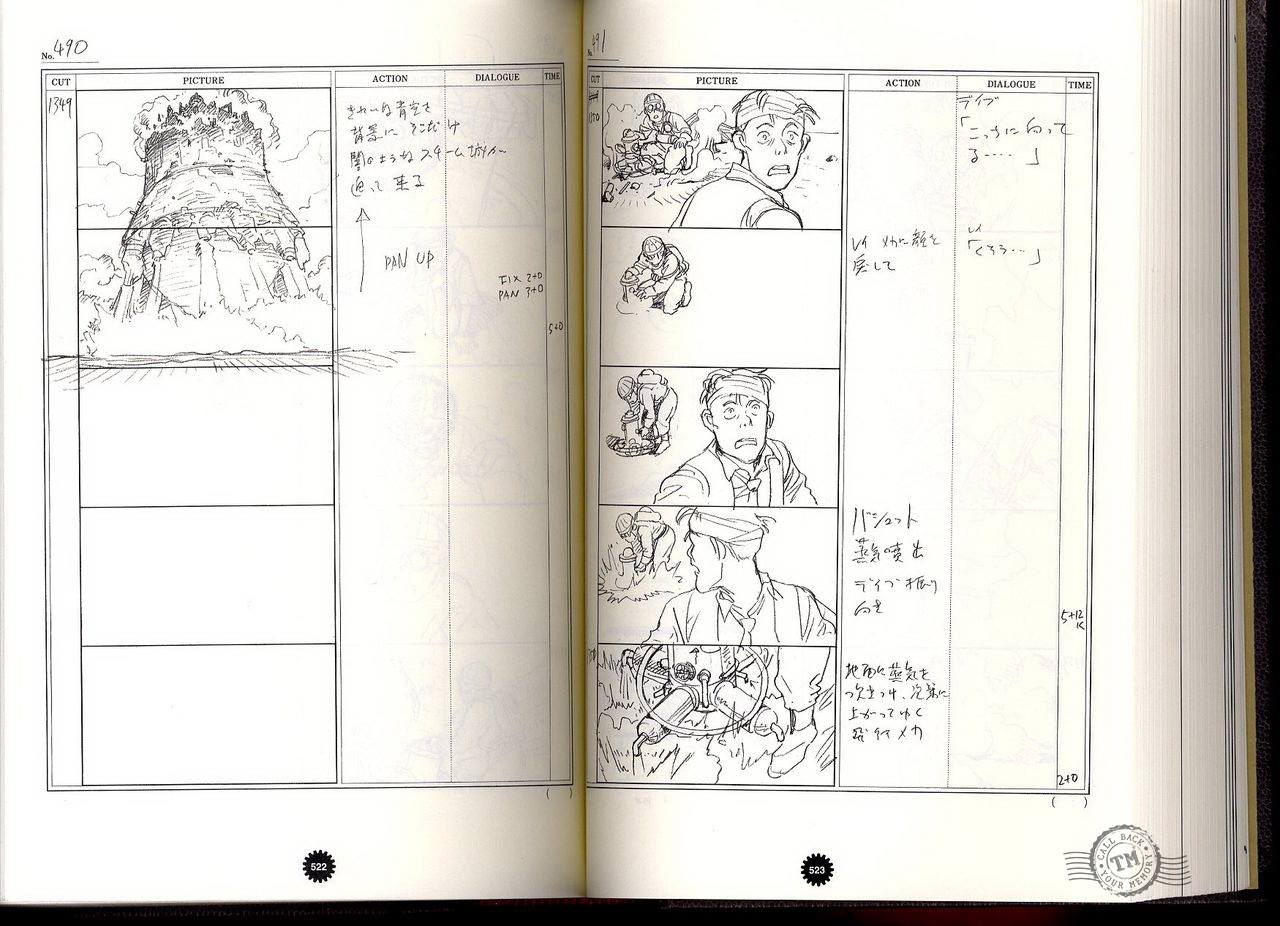 No. 490
CUT
PICTURE
ACTION
DIALOGUE
TIME
1349
きれいな青空を
背景に そこだけ
闇のようなスチーム城が
迫って来る
PAN UP
FIX 2+0
PAN 3+0
5+0
522
No. 491
CUT
PICTURE
ACTION
DIALOGUE
TIME
デイブ
「こっちに向って
る‥‥」
レイ メカに顔を
戻して
レイ
「くそう…」
バシュット
蒸気噴出
デイブ振り
向き
5+12
地面に蒸気を
上がってゆく
飛行メカ
2+0
523
CALL BACK
TM
YOUR MEMORY